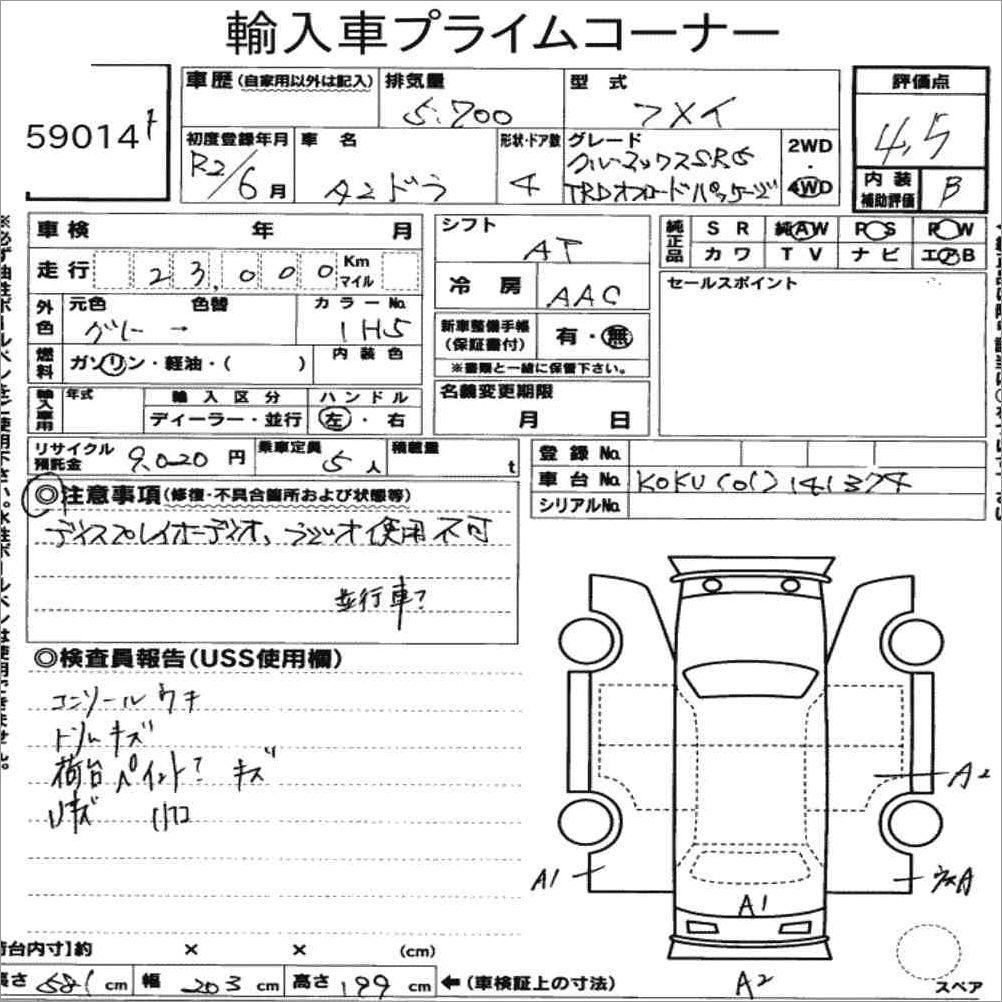 輸入車プライムコーナー
59014
車歴(自家用以外は記入)
排気量
5.700
型式
フメイ
評価点
4.5
初度登録年月
R2/6月
車名
タンドラ
形状・ドア数
4
グレード
クルーマックスSR5
TRDオフロードパッケージ
2WD
・
4WD
内装
補助評価
B
車検 年 月
走行 23,000 Km マイル
外色
元色 色替 カラーNo.
グレー → 1H5
燃料
ガソリン・軽油・( )
内装色
輸入車用
年式
輸入区分
ディーラー・並行
ハンドル
左・右
シフト
AT
冷房
AAC
新車整備手帳
(保証書付)
有・無
※書類と一緒に保管下さい。
名義変更期限
月 日
純正品
SR 純AW PS PW
カワ TV ナビ エアB
セールスポイント
リサイクル
預託金
9,020円
乗車定員
5人
積載量
t
登録No.
車台No. KOKU(01)141374
シリアルNo.
◎注意事項(修復・不具合箇所および状態等)
ディスプレイオーディオ、ラジオ使用不可
並行車?
◎検査員報告(USS使用欄)
コンソールウキ
トリムキズ
荷台ペイント? キズ
A2
A1
A1
A2
スペア
荷台内寸】約 × × (cm)
長さ 581 cm 幅 203 cm 高さ 199 cm ←(車検証上の寸法)